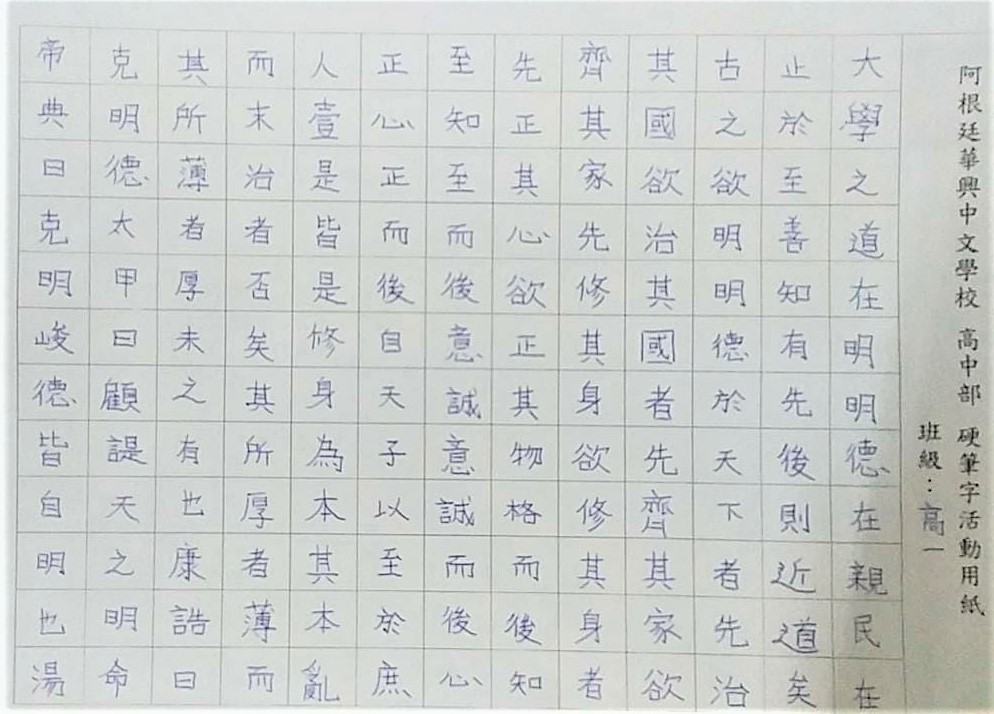 阿根廷華興中文學校 高中部 硬筆字活動用紙
班級：高一
大學之道在明明德在親民在
止於至善知有先後則近道矣
古之欲明明德於天下者先治
其國欲治其國者先齊其家欲
齊其家先修其身欲修其身者
先正其心欲正其物格而后知
至知至而後意誠意誠而後心
正心正而後自天子以至於庶
人壹是皆是修身為本其本亂
而末治者否矣其所厚者薄而
其所薄者厚未之有也康誥曰
克明德太甲曰顧諟天之明命
帝典曰克明峻德皆自明也湯